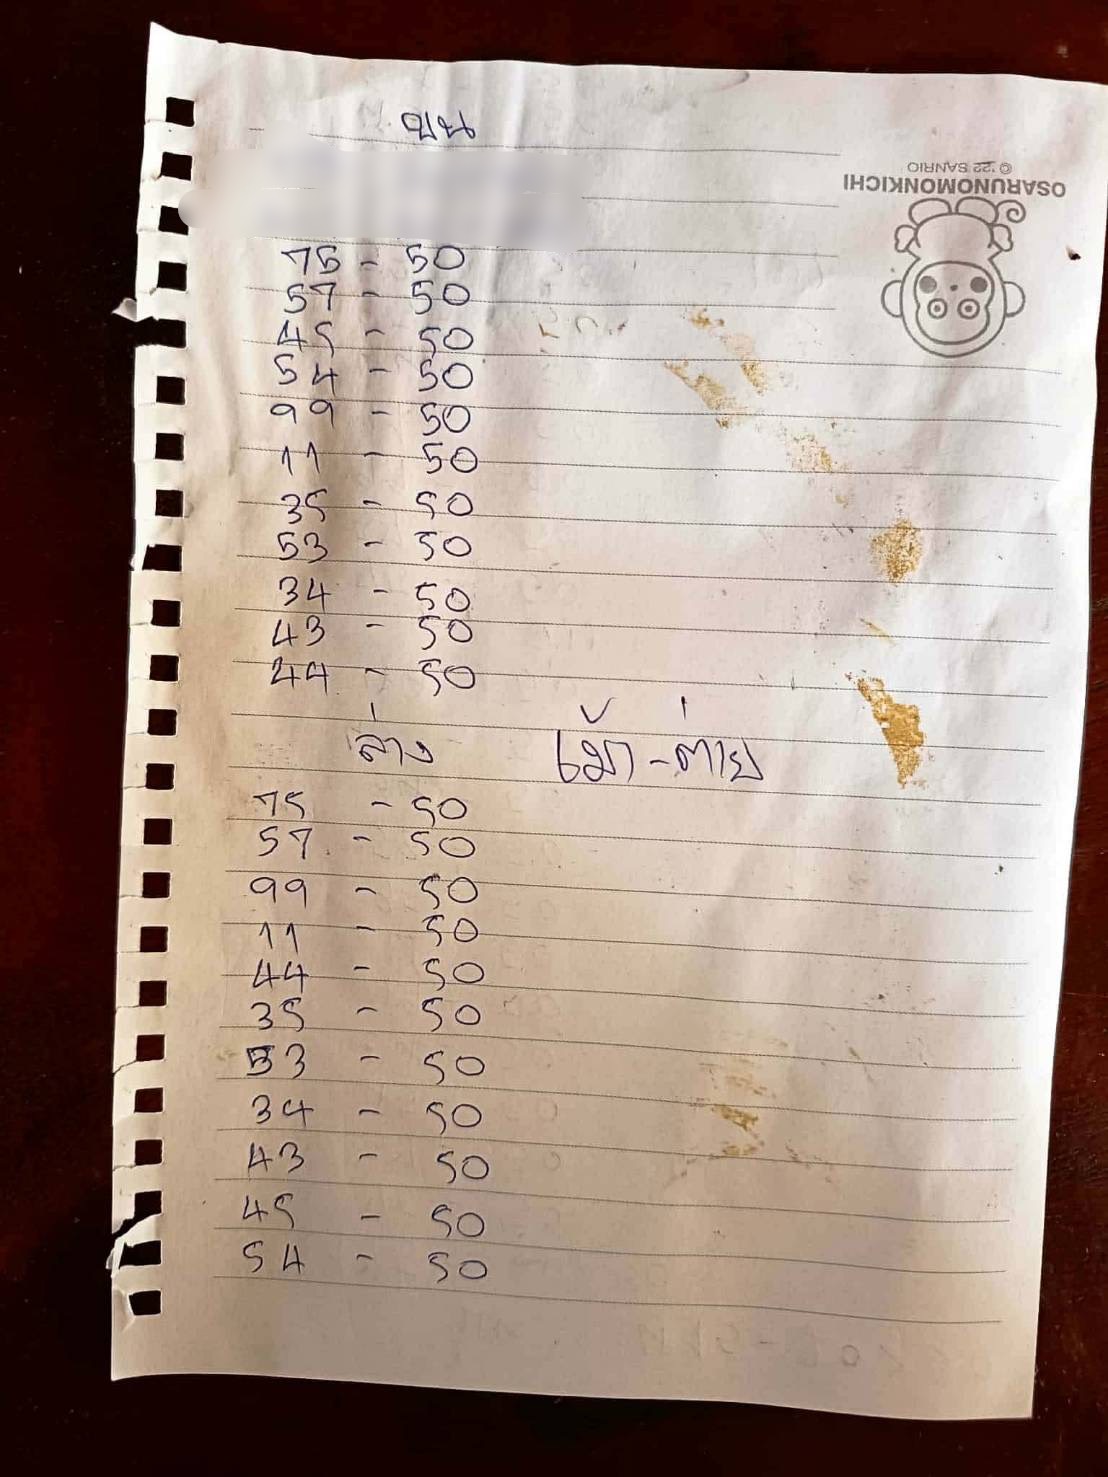 บน
OSARUNOMONKICHI
© '22 SANRIO
75 - 50
57 - 50
45 - 50
54 - 50
99 - 50
11 - 50
35 - 50
53 - 50
34 - 50
43 - 50
44 - 50
ล่าง เม้า-ต่าย
75 - 50
57 - 50
99 - 50
11 - 50
44 - 50
35 - 50
53 - 50
34 - 50
43 - 50
45 - 50
54 - 50